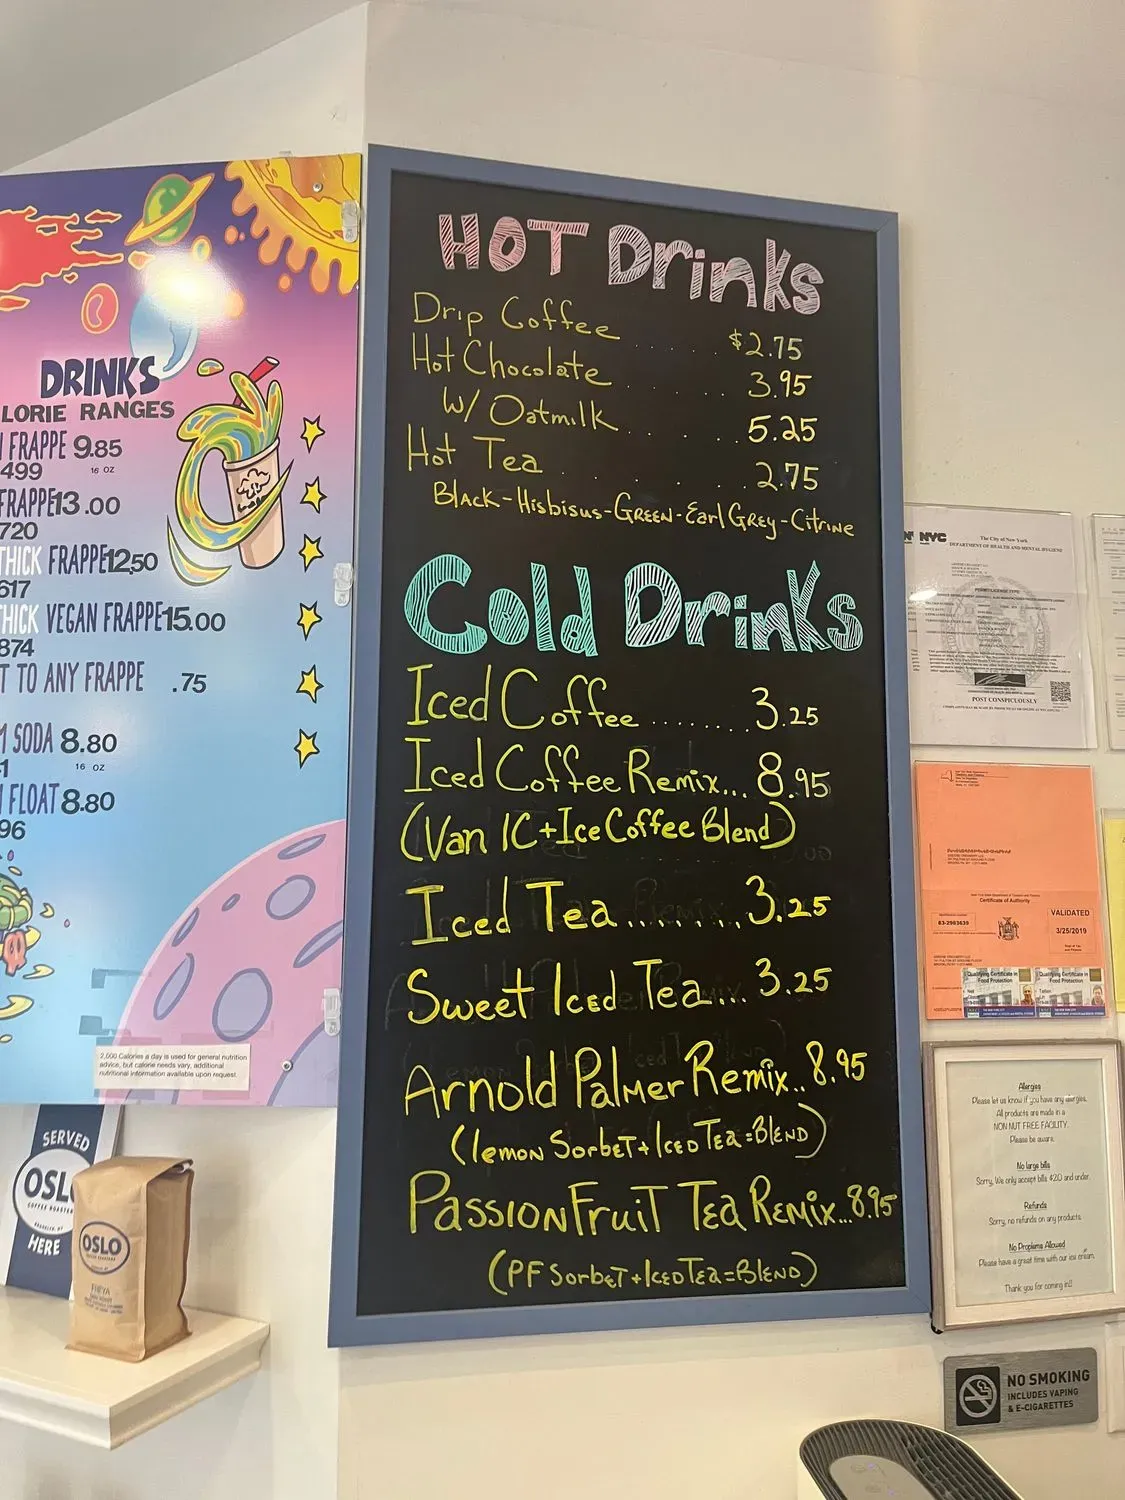 DRINKS
LORIE RANGES
FRAPPE 9.85
499 16 OZ
FRAPPE 13.00
720
THICK FRAPPE 12.50
617
THICK VEGAN FRAPPE 15.00
874
T TO ANY FRAPPE .75
SODA 8.80
1 16 OZ
FLOAT 8.80
96
2,000 Calories a day is used for general nutrition
advice, but calorie needs vary, additional
nutritional information available upon request.
SERVED
OSLO
COFFEE ROASTERS
HERE
OSLO
FREYA
HOT Drinks
Drip Coffee ...... $2.75
Hot Chocolate ...... 3.95
W/ Oatmilk ...... 5.25
Hot Tea ...... 2.75
Black-Hisbisus-GREEN-Earl Grey-Citrine
Cold Drinks
Iced Coffee ....... 3.25
Iced Coffee Remix... 8.95
(Van IC + Ice Coffee Blend)
Iced Tea ....... 3.25
Sweet Iced Tea... 3.25
Arnold Palmer Remix.. 8.95
(lemon Sorbet + Iced Tea = Blend)
PassionFruit Tea Remix... 8.95
(PF Sorbet + Iced Tea = Blend)
NYC
The City of New York
DEPARTMENT OF HEALTH AND MENTAL HYGIENE
POST CONSPICUOUSLY
Certificate of Authority
VALIDATED
3/25/2019
Qualifying Certificate in
Food Protection
Qualifying Certificate in
Food Protection
Allergies
Please let us know if you have any allergies.
All products are made in a
NON NUT FREE FACILITY.
Please be aware.
No large bills
Sorry, We only accept bills $20 and under.
Refunds
Sorry, no refunds on any products.
No Proplems Allowed
Please have a great time with our ice cream.
Thank you for coming in!!
NO SMOKING
INCLUDES VAPING
& E-CIGARETTES